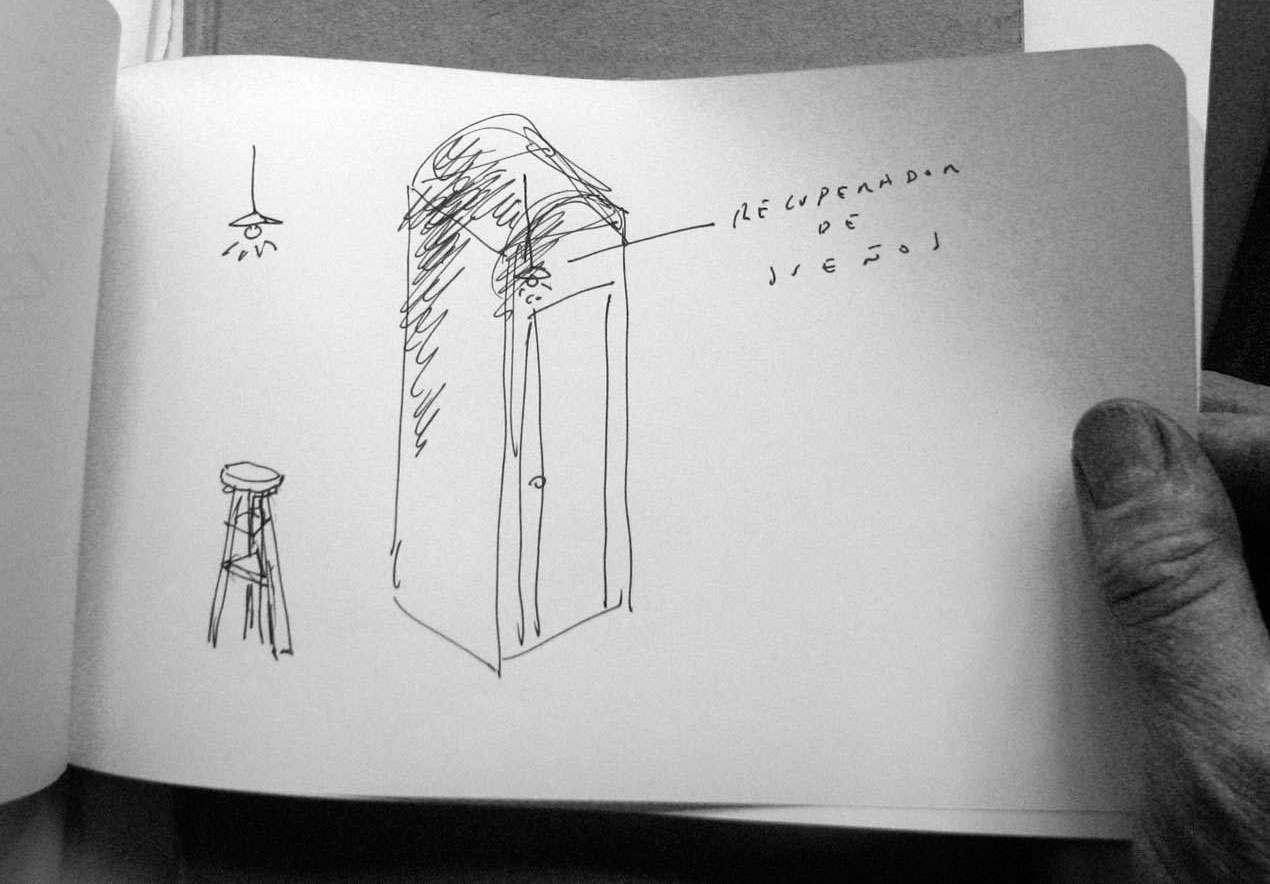 RECUPERADOR
DE
SUEÑOS